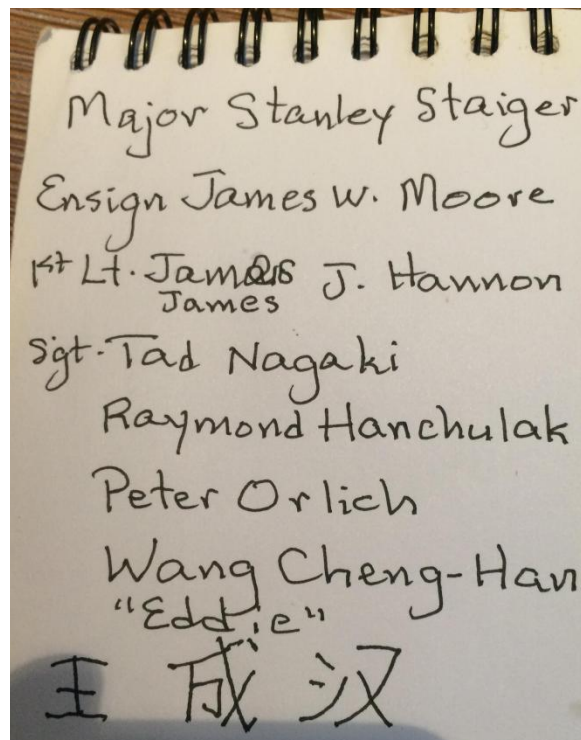 Major Stanley Staiger
Ensign James W. Moore
1st Lt. James J. Hannon
James
Sgt. Tad Nagaki
Raymond Hanchulak
Peter Orlich
Wang Cheng-Han
"Eddie"
王 成 汉